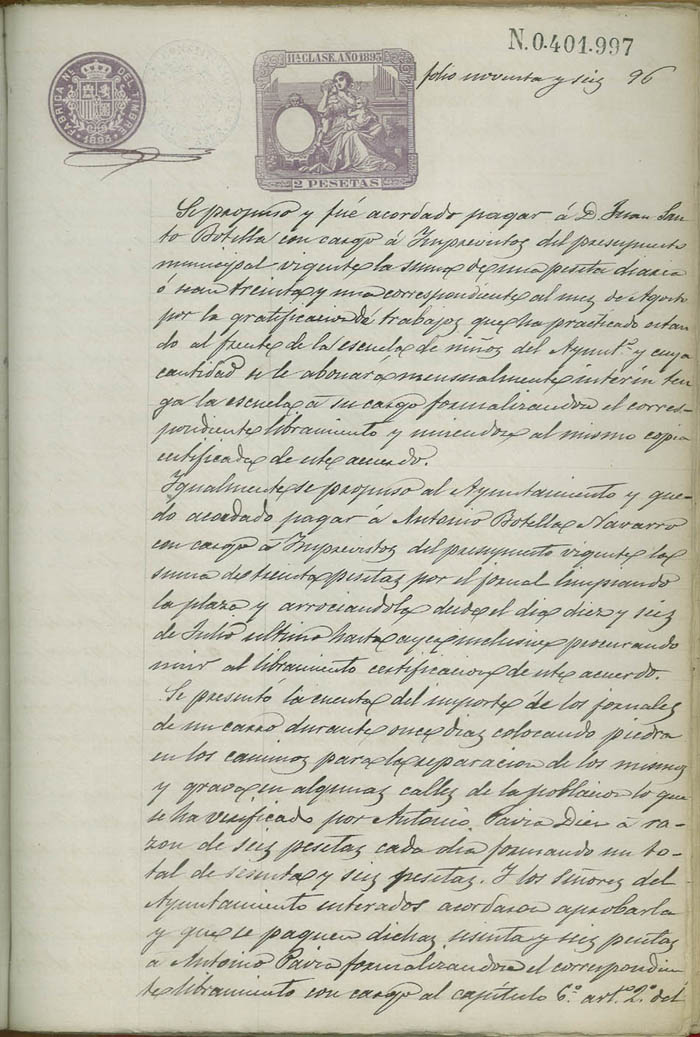 N.0.401.997
FABRICA Nal DEL TIMBRE
1893
11ª CLASE. AÑO 1893
2 PESETAS
folio noventa y seis 96
Se propuso y fué acordado pagar á D. Juan San-
to Botella con cargo á Imprevistos del presupuesto
municipal vigente la suma de una peseta diaria
ó sean treinta y una correspondiente al mes de Agosto
por la gratificacion de trabajos que ha practicado estan
do al frente de la escuela de niños del Ayunt.º y cuya
cantidad se le abonará mensualmente interin ten
ga la escuela á su cargo formalizandose el corres-
pondiente libramiento y uniendose al mismo copia
certificada de este acuerdo.
Igualmente se propuso al Ayuntamiento y que-
dó acordado pagar á Antonio Botella Navarro
con cargo á Imprevistos del presupuesto vigente la
suma de treinta pesetas por el jornal limpiando
la plaza y arrociandola desde el dia diez y seis
de Julio ultimo hasta ayer inclusive procurando
unir al libramiento certificacion de este acuerdo.
Se presentó la cuenta del importe de los jornales
de un carro durante once dias colocando piedra
en los caminos para la reparacion de los mismos
y grava en algunas calles de la poblacion lo que
se ha verificado por Antonio Pavia Dien á ra-
zon de seis pesetas cada dia formando un to-
tal de sesenta y seis pesetas. Y los Señores del
Ayuntamiento enterados acordaron aprobarla
y que se paguen dichas sesenta y seis pesetas
a Antonio Pavia formalizandose el correspondien
te libramiento con cargo al capítulo 6.º art.º 2.º del